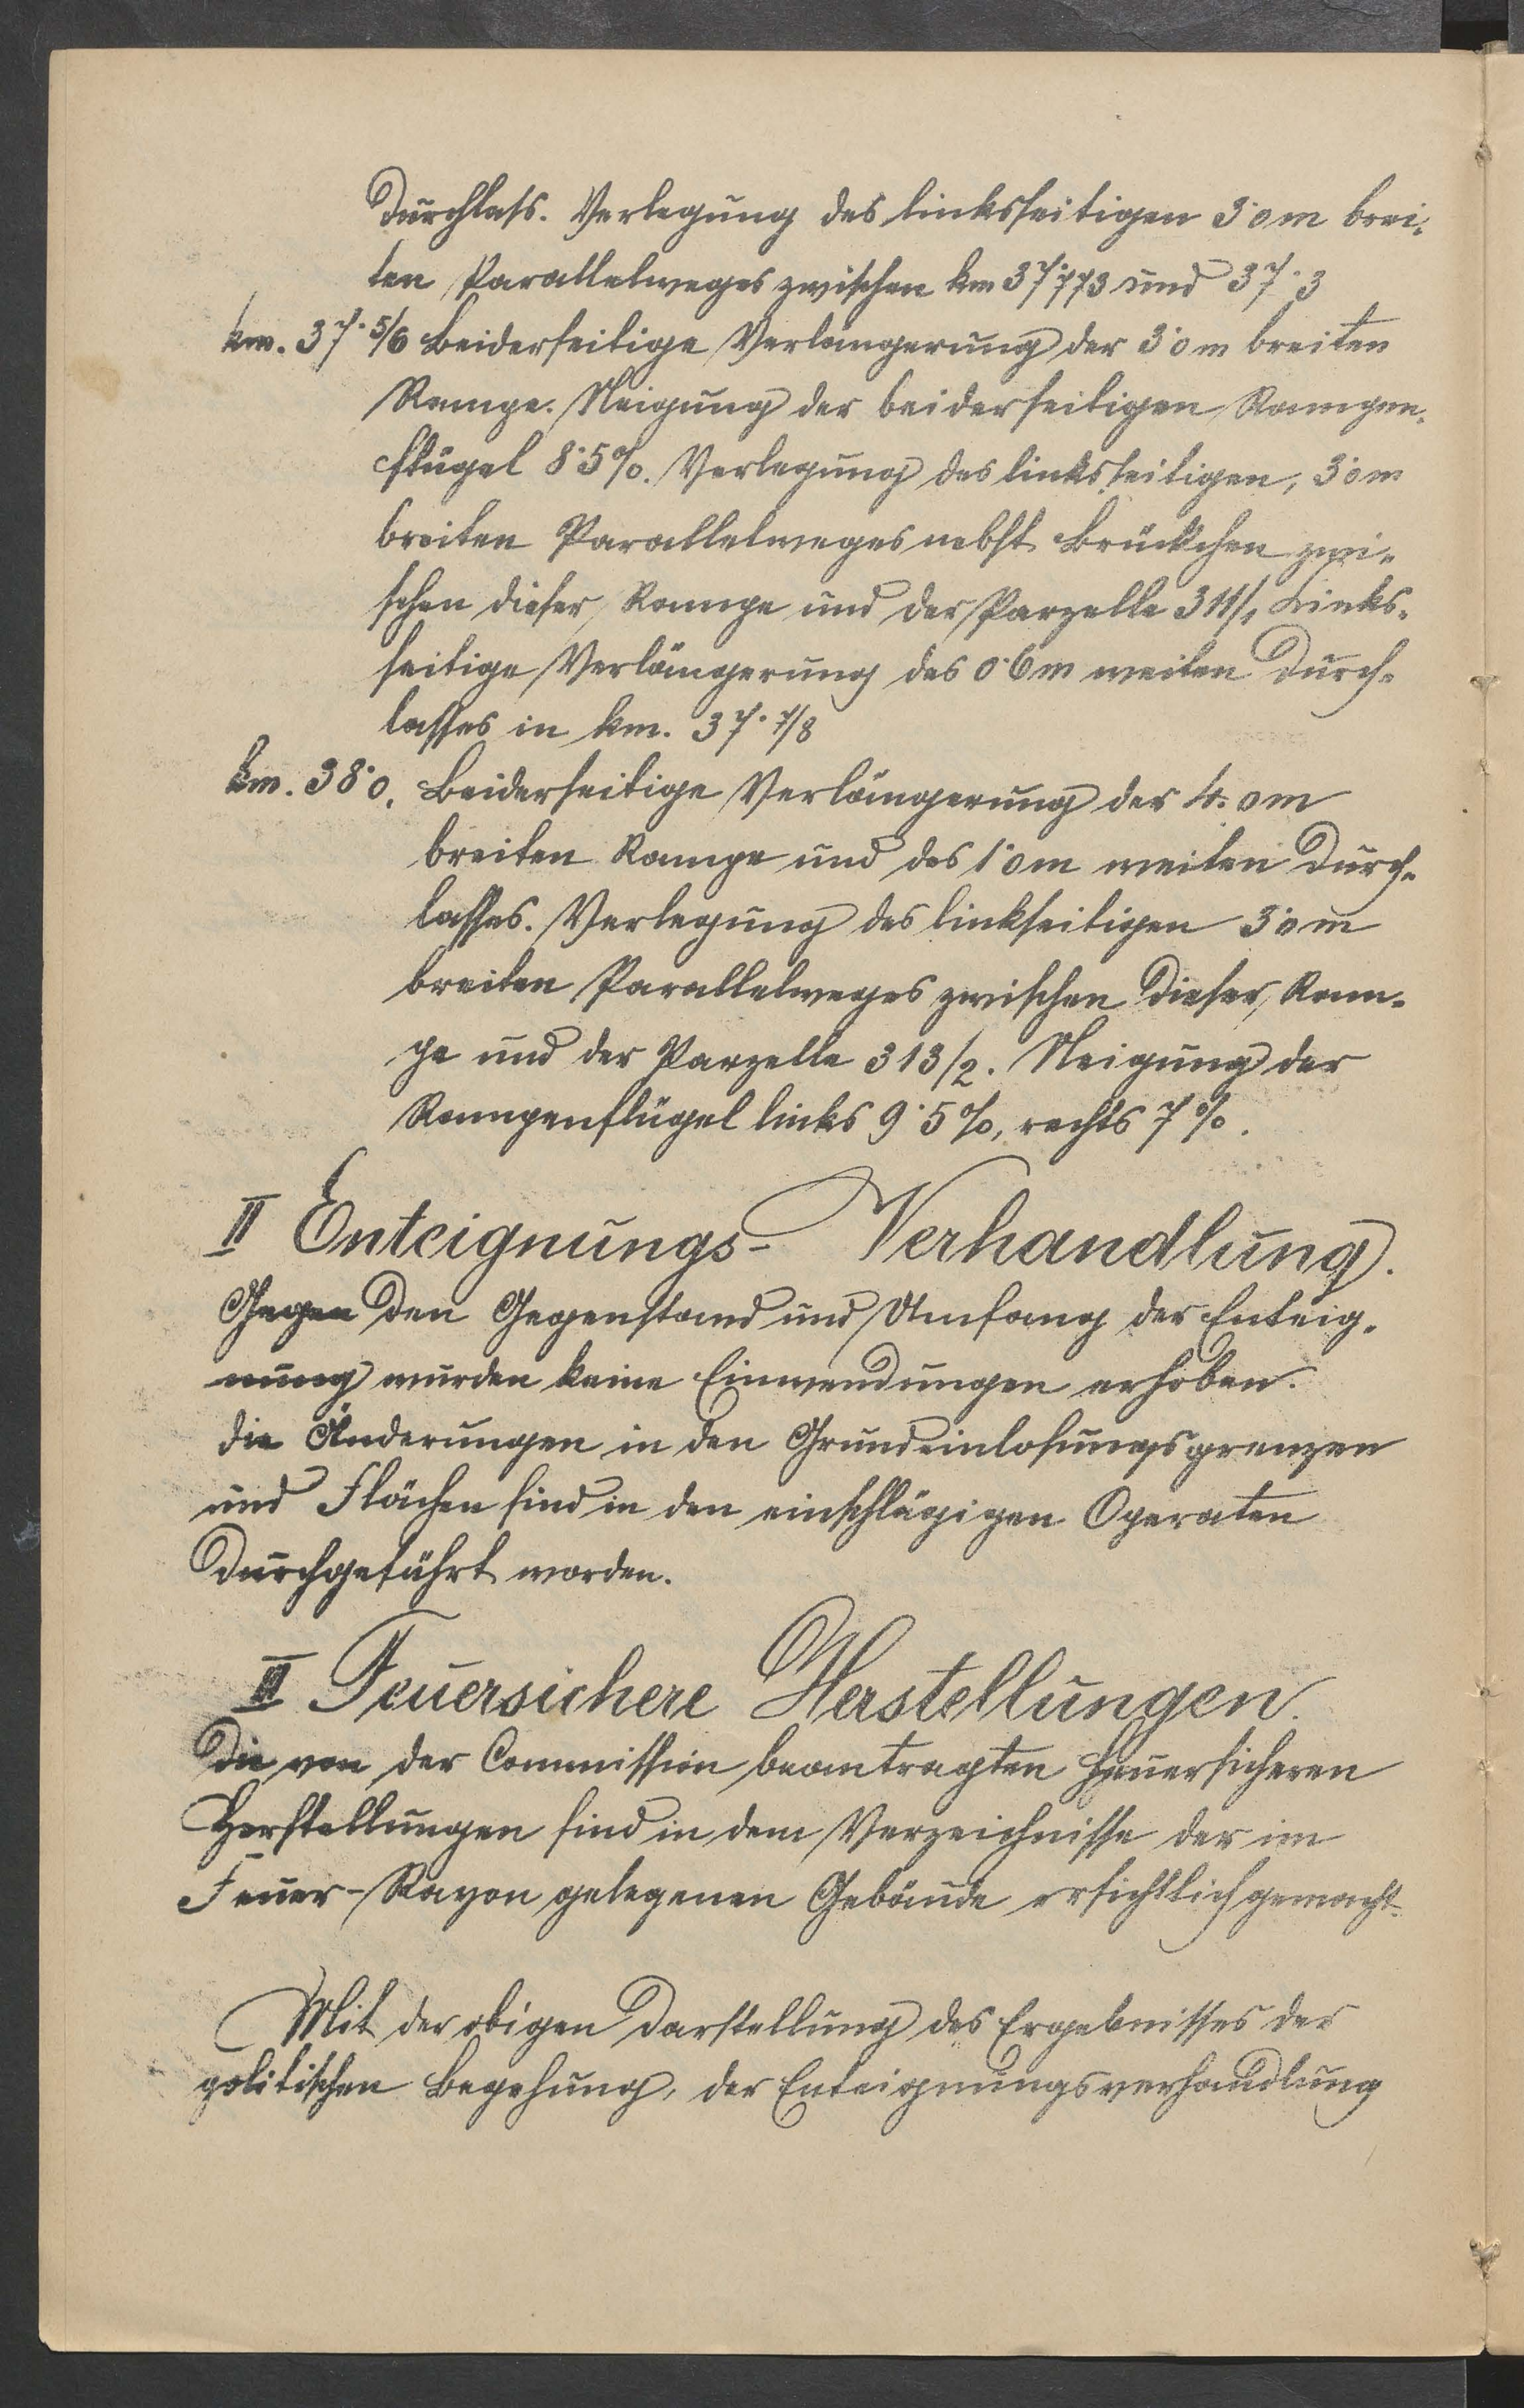 Durchlass. Verlegung des linksseitigen 3·0m brei-
ten Parallelweges zwischen km 37·773 und 37·3
km. 37·5/6 Beiderseitige Verlängerung der 3·0m breiten
Rampe. Neigung der beiderseitigen Rampen-
flügel 8·5%. Verlegung des linksseitigen, 3·0m
breiten Parallelweges nebst Brückchen zwi-
schen dieser Rampe und der Parzelle 311/1 Links-
seitige Verlängerung des 0·6m weiten Durch-
lasses in km. 37·7/8
km. 38·0. Beiderseitige Verlängerung der 4·0m
breiten Rampe und des 1·0m weiten Durch-
lasses. Verlegung des linkseitigen 3·0m
breiten Parallelweges zwischen dieser Ram-
pe und der Parzelle 313/2. Neigung der
Rampenflügel links 9·5%, rechts 7%.
II Enteignungs- Verhandlung.
Gegen den Gegenstand und Umfang der Enteig-
nung wurden keine Einwendungen erhoben.
Die Änderungen in den Grundeinlosungsgrenzen
und Flächen sind in den einschlägigen Operaten
durchgeführt worden.
III Feuersichere Herstellungen.
Die von der Commission beantragten feuersicheren
Herstellungen sind in dem Verzeichnisse der im
Feuer-Rayon gelegenen Gebäude ersichtlich gemacht.
Mit der obigen Darstellung des Ergebnisses der
politischen Begehung, der Enteignungsverhandlung